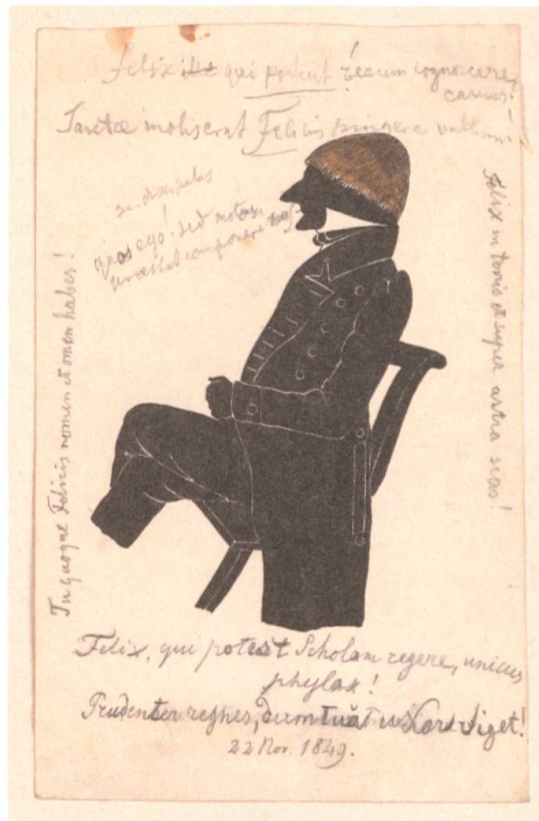 Felix qui potuit rerum cognoscere
causas!
Felicis pingere vultum!
sc. discipulos
quos ego! sed motos
praestat componere
Felix in tonis et super astra
Tu quoque Felicis nomen et omen habes!
Felix, qui potest Scholam regere, unicus
phylax!
Prudenter reghes, dum tua viget!
22 Nov. 1849.